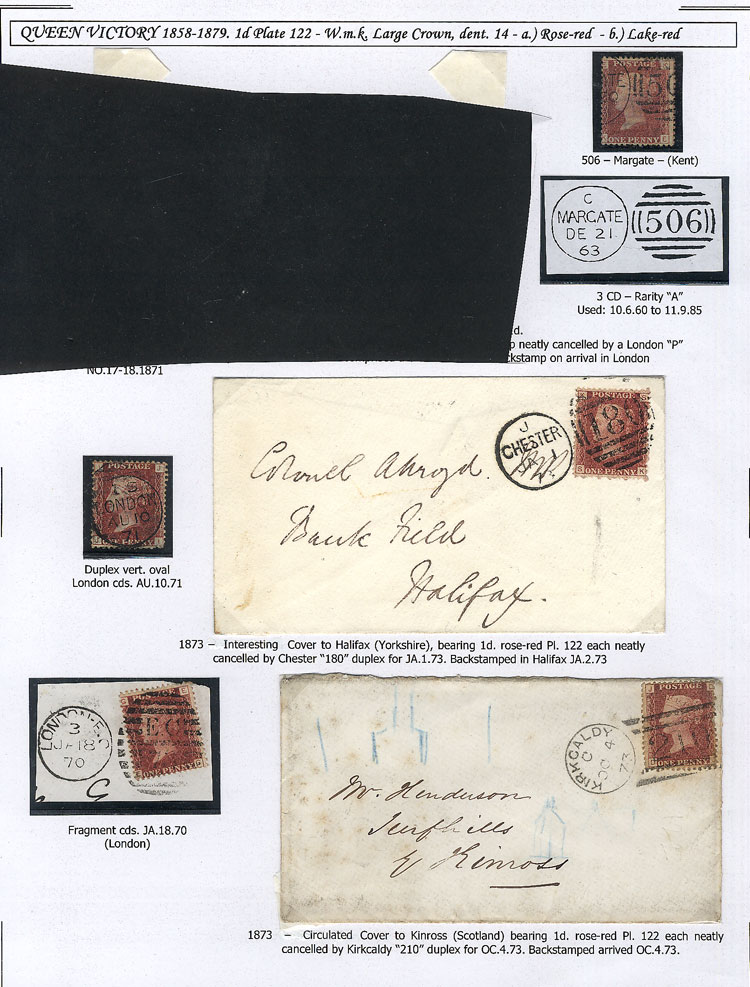 QUEEN VICTORY 1858-1879. 1d Plate 122 - W.m.k. Large Crown, dent. 14 - a.) Rose-red - b.) Lake-red
506 – Margate – (Kent)
C
MARGATE
DE 21
63
506
3 CD – Rarity "A"
Used: 10.6.60 to 11.9.85
d.
neatly cancelled by a London "P"
NO.17-18.1871
on arrival in London
J
CHESTER
JA 1
POSTAGE
180
ONE PENNY
Colonel Akroyd.
Bank Field
Halifax.
POSTAGE
LONDON
AU 10
71
ONE PENNY
Duplex vert. oval
London cds. AU.10.71
1873 – Interesting Cover to Halifax (Yorkshire), bearing 1d. rose-red Pl. 122 each neatly
cancelled by Chester "180" duplex for JA.1.73. Backstamped in Halifax JA.2.73
LONDON-E.C
3
JA 18
70
EC
ONE PENNY
Fragment cds. JA.18.70
(London)
KIRKCALDY
C
OC 4
73
POSTAGE
Mr. Henderson
by Kinross
1873 – Circulated Cover to Kinross (Scotland) bearing 1d. rose-red Pl. 122 each neatly
cancelled by Kirkcaldy "210" duplex for OC.4.73. Backstamped arrived OC.4.73.